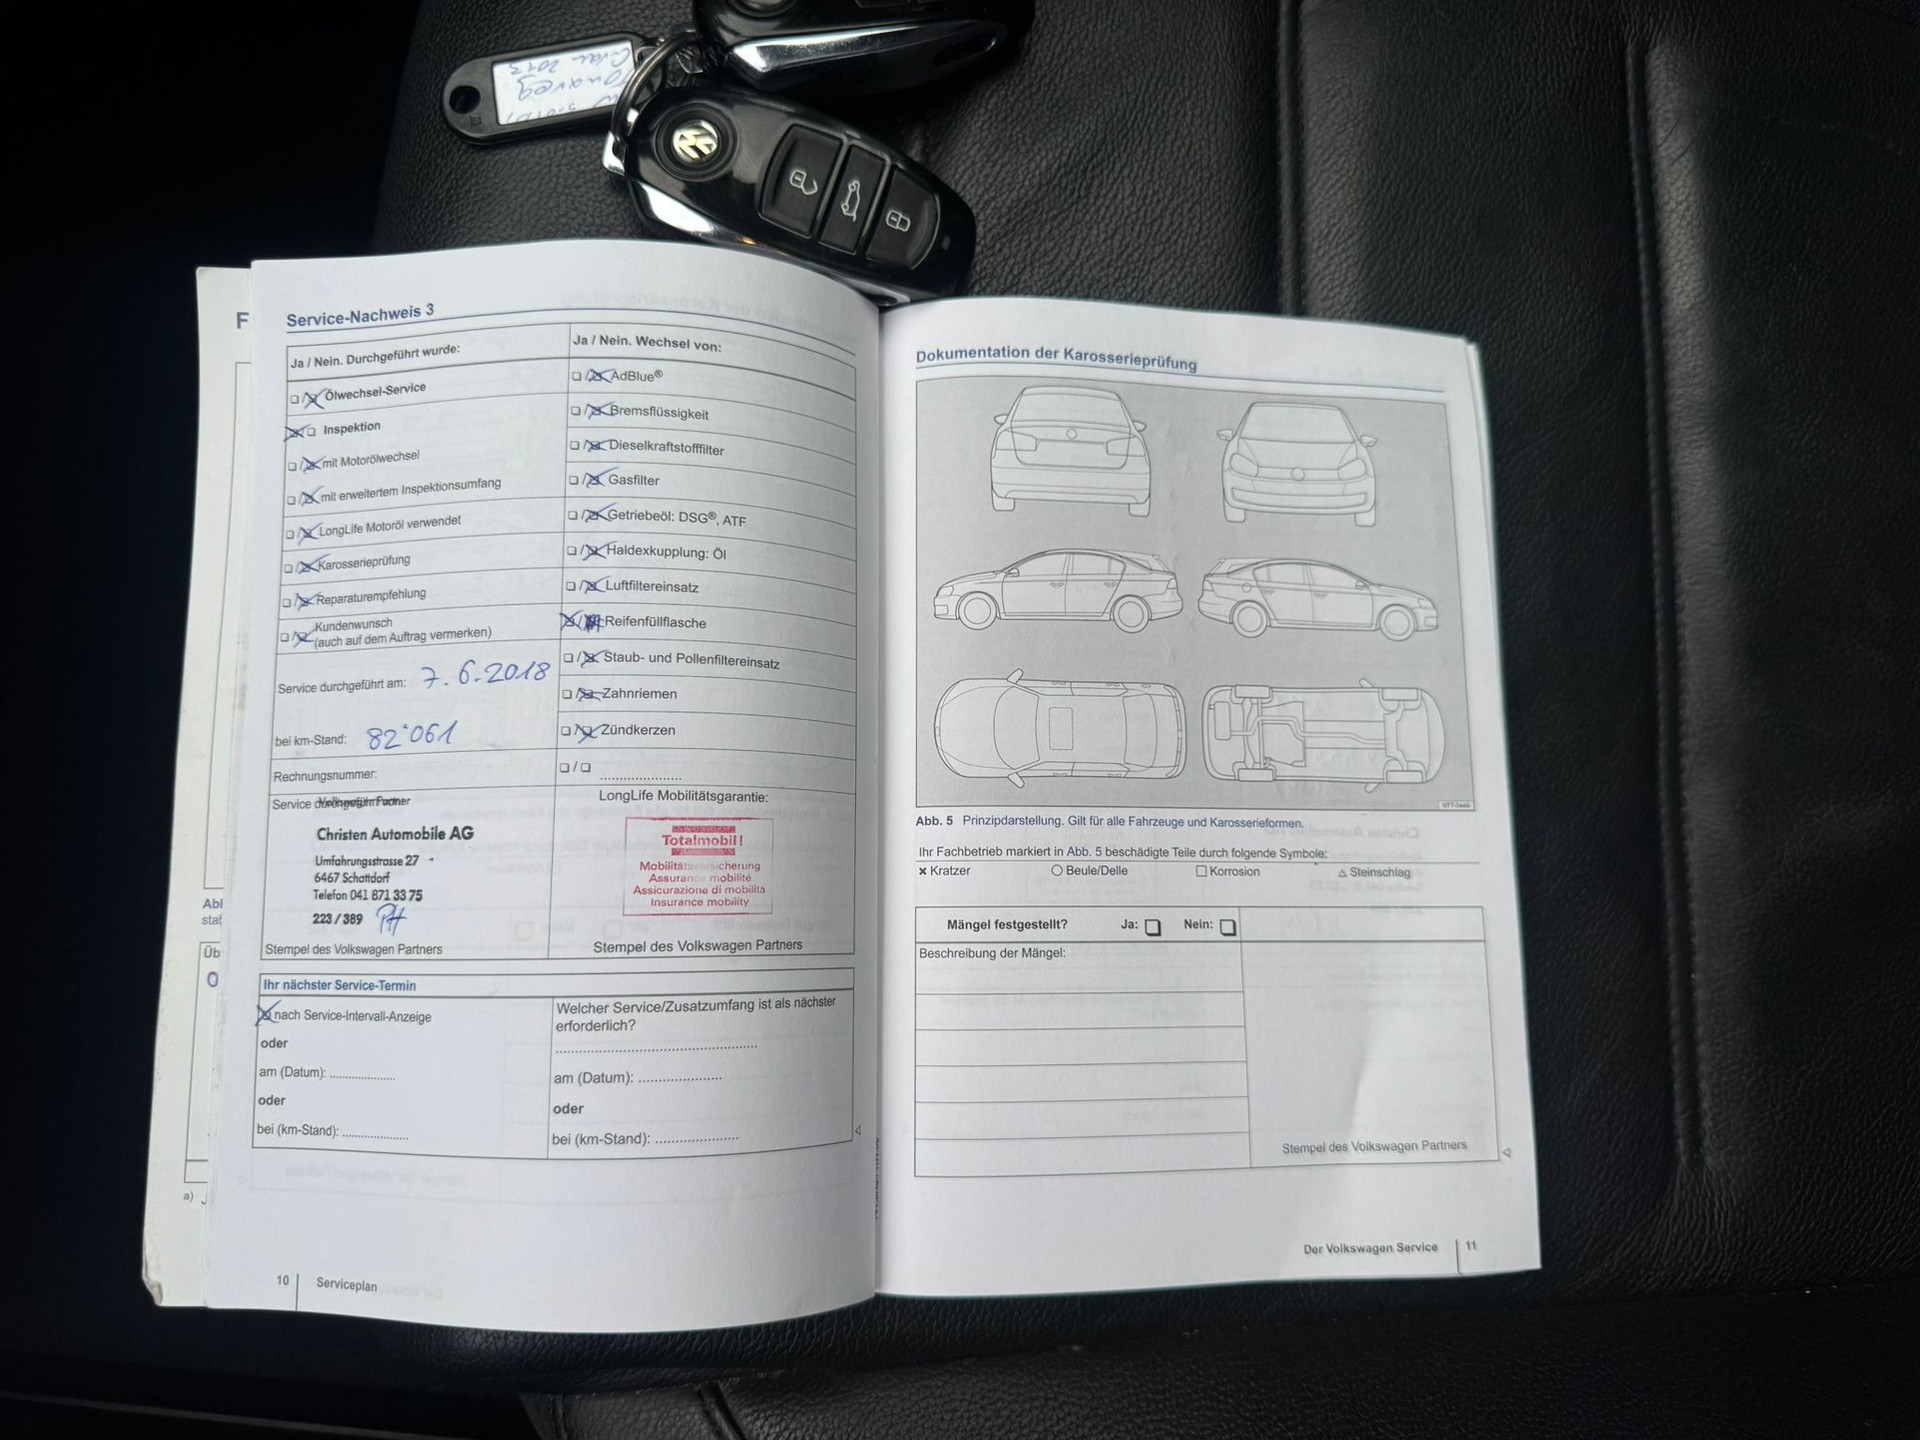 Touareg
2013
F
Service-Nachweis 3
Ja / Nein. Durchgeführt wurde:
Ölwechsel-Service
Inspektion
mit Motorölwechsel
mit erweitertem Inspektionsumfang
LongLife Motoröl verwendet
Karosserieprüfung
Reparaturempfehlung
Kundenwunsch
(auch auf dem Auftrag vermerken)
Service durchgeführt am: 7.6.2018
bei km-Stand: 82'061
Rechnungsnummer:
Ja / Nein. Wechsel von:
AdBlue®
Bremsflüssigkeit
Dieselkraftstofffilter
Gasfilter
Getriebeöl: DSG®, ATF
Haldexkupplung: Öl
Luftfiltereinsatz
Reifenfüllflasche
Staub- und Pollenfiltereinsatz
Zahnriemen
Zündkerzen
Service
Christen Automobile AG
Umfahrungsstrasse 27
6467 Schattdorf
Telefon 041 871 33 75
223 / 389 PH
Stempel des Volkswagen Partners
LongLife Mobilitätsgarantie:
Totalmobil!
Mobilitätsversicherung
Assurance mobilité
Assicurazione di mobilità
Insurance mobility
Stempel des Volkswagen Partners
Ihr nächster Service-Termin
nach Service-Intervall-Anzeige
oder
am (Datum): ....................
oder
bei (km-Stand): ....................
Welcher Service/Zusatzumfang ist als nächster
erforderlich?
am (Datum): ....................
oder
bei (km-Stand): ....................
10 Serviceplan
Abl
stat
Üb
a)
Dokumentation der Karosserieprüfung
Abb. 5 Prinzipdarstellung. Gilt für alle Fahrzeuge und Karosserieformen.
Ihr Fachbetrieb markiert in Abb. 5 beschädigte Teile durch folgende Symbole:
× Kratzer ○ Beule/Delle □ Korrosion △ Steinschlag
Mängel festgestellt? Ja: Nein:
Beschreibung der Mängel:
Stempel des Volkswagen Partners
Der Volkswagen Service 11